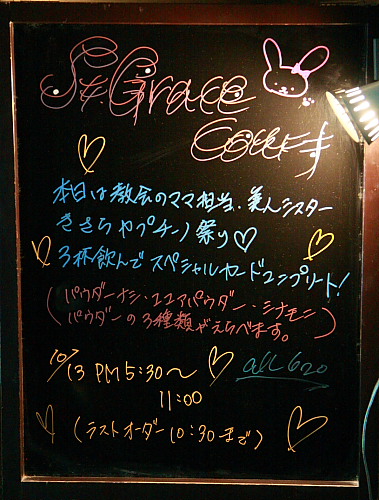 St Grace
Court
本日は教会のママ相当、美人シスター
きさらカプチーノ祭り♡
3杯飲んでスペシャルカードコンプリート!
(パウダーナシ・ココアパウダー・シナモン
パウダーの3種類がえらべます。)
10/13 PM 5:30〜
11:00
all 620
(ラストオーダー 10:30まで)